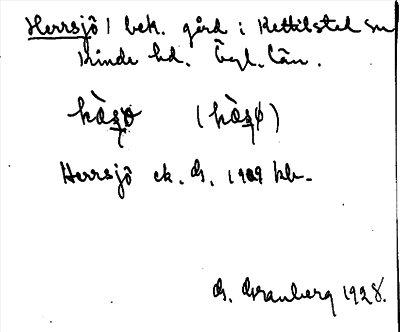 Herrsjö 1 bek. gård i Kettilstad sn
Kinda hd. Ögl. län.
Herrsjö ek. G. 1909 kb.
G. Granberg 1928.